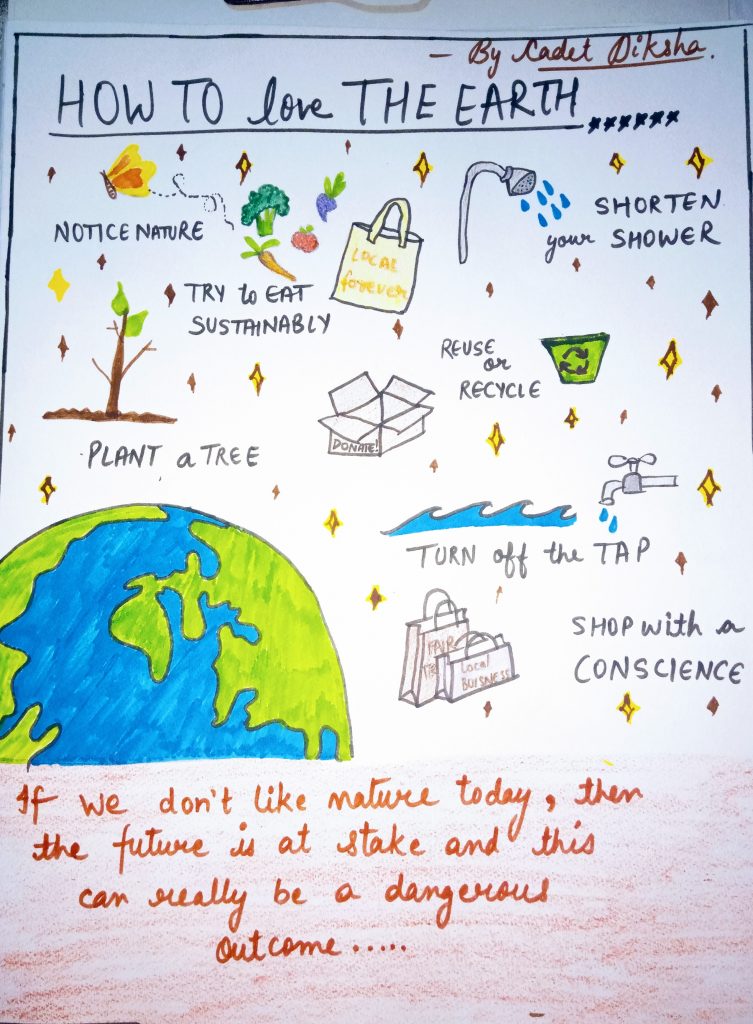 - By Cadet Diksha.
HOW TO love THE EARTH
NOTICE NATURE
SHORTEN
your SHOWER
LOCAL
forever
TRY to EAT
SUSTAINABLY
REUSE
or
RECYCLE
DONATE!
PLANT a TREE
TURN off the TAP
FAIR
Local
BUISNESS
SHOP with a
CONSCIENCE
If we don't like nature today, then
the future is at stake and this
can really be a dangerous
outcome.....